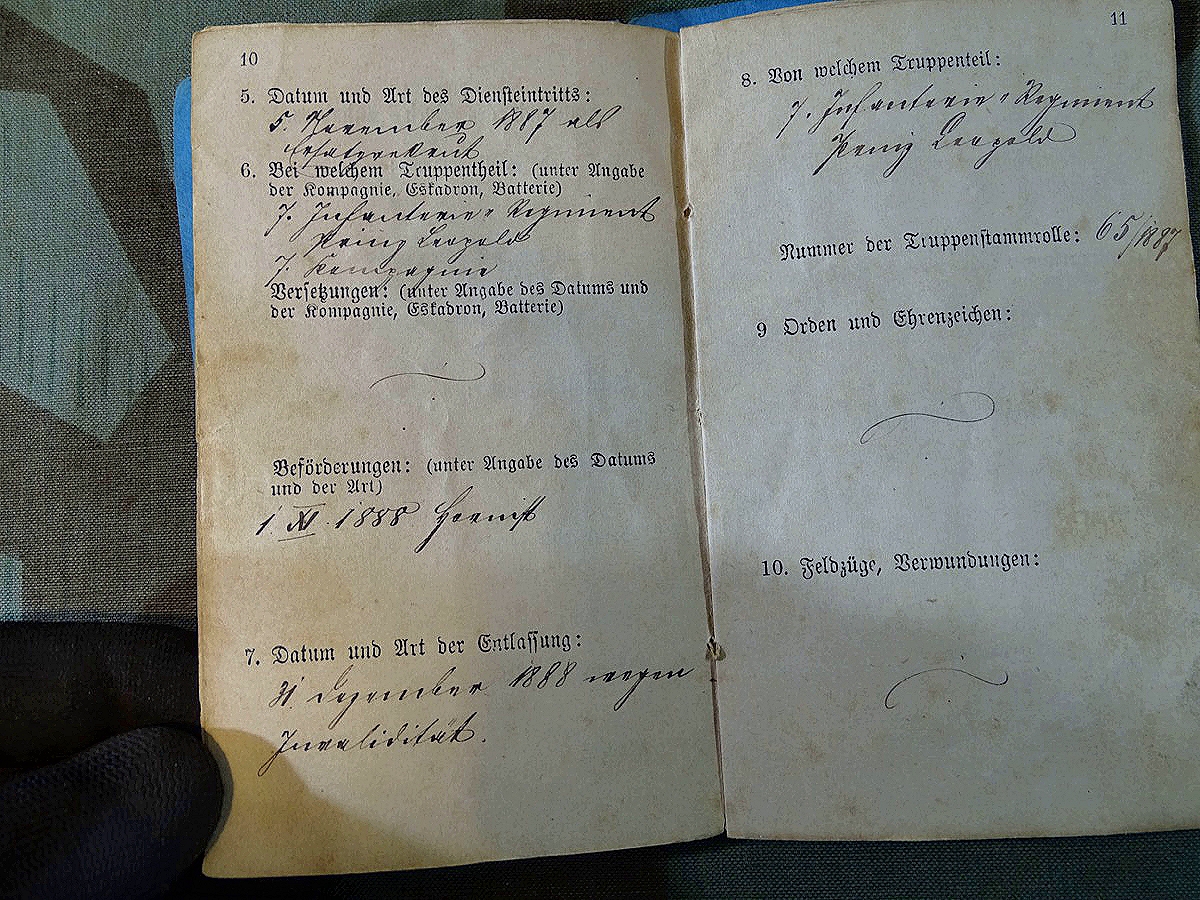 10
5. Datum und Art des Diensteintritts:
5. November 1887 als
Ersatzrekrut
6. Bei welchem Truppentheil: (unter Angabe
der Kompagnie, Eskadron, Batterie)
7. Infanterie-Regiment
Prinz Leopold
7. Kompagnie
Versetzungen: (unter Angabe des Datums und
der Kompagnie, Eskadron, Batterie)
Beförderungen: (unter Angabe des Datums
und der Art)
1. XI. 1888 Hornist
7. Datum und Art der Entlassung:
31. Dezember 1888 wegen
Invalidität.
11
8. Von welchem Truppenteil:
7. Infanterie-Regiment
Prinz Leopold
Nummer der Truppenstammrolle: 65/1887
9 Orden und Ehrenzeichen:
10. Feldzüge, Verwundungen: